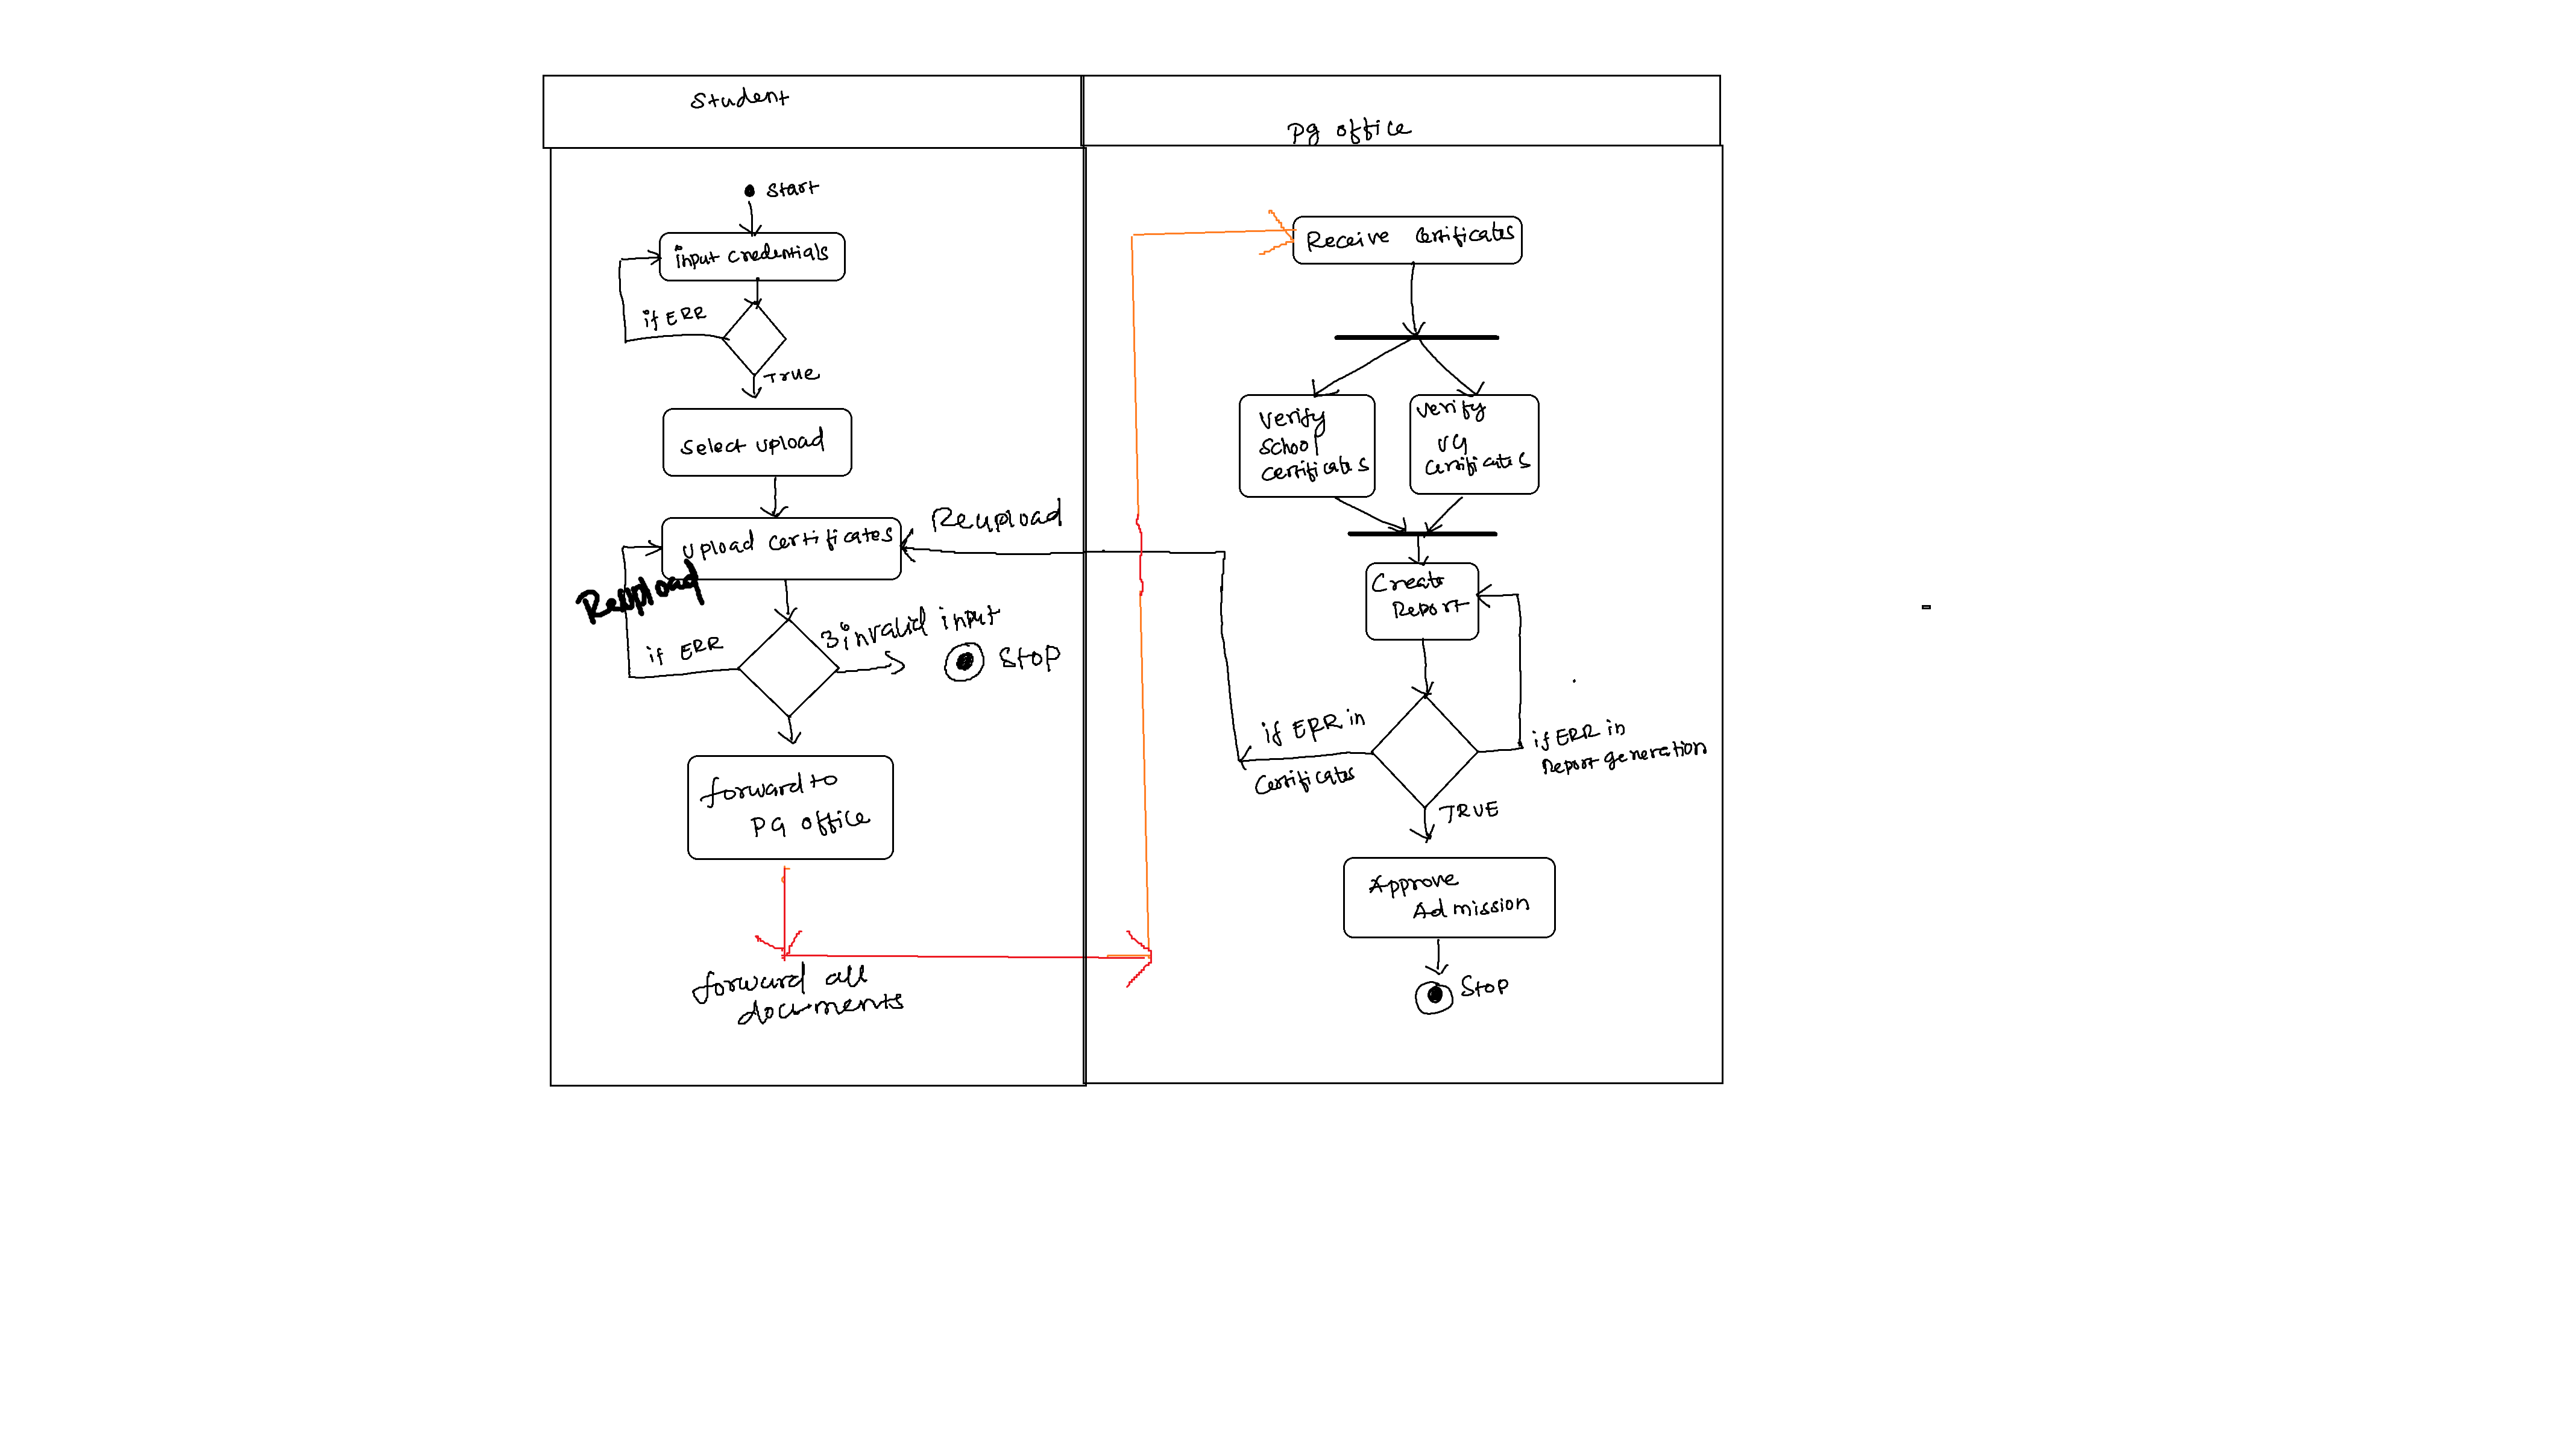 Student
Pg office
Start
input credentials
if ERR
True
Select upload
upload certificates
Reupload
if ERR
3 invalid input
Stop
forward to
PG office
forward all
documents
Reupload
Receive Certificates
Verify
School
certificates
Verify
UG
certificates
Create
Report
if ERR in
Certificates
if ERR in
Report generation
TRUE
Approve
Admission
Stop